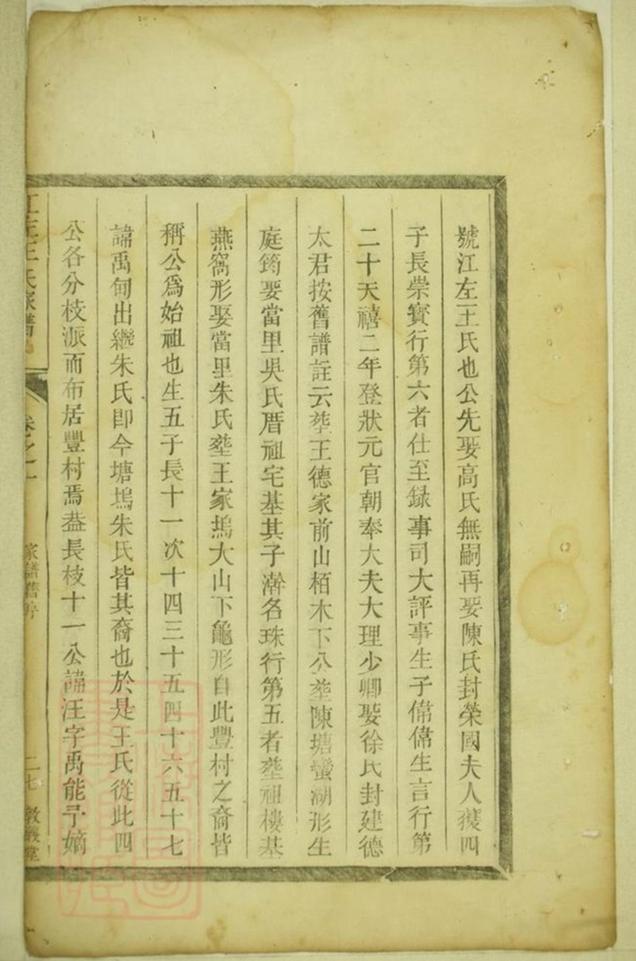 號江左王氏也公先娶高氏無嗣再娶陳氏封榮國夫人獲四
子長崇實行第六者仕至録事司大評事生子偁偁生言行第
二十天禧二年登狀元官朝奉大夫大理少卿娶徐氏封建德
太君按舊譜註云塟王德家前山栢木下公塟陳塘蠻湖形生
庭筠娶當里吳氏厝祖宅基其子澣名珠行第五者塟祖樓基
燕窩形娶當里朱氏塟王家塢大山下龜形自此豐村之裔皆
稱公爲始祖也生五子長十一次十四三十五四十六五十七
諱禹甸出繼朱氏即今塘塢朱氏皆其裔也於是王氏從此四
公各分枝派而布居豐村焉葢長枝十一公諱汪字禹能予嫡
江左王氏家譜
卷之一
家譜舊序
二七
敦義堂